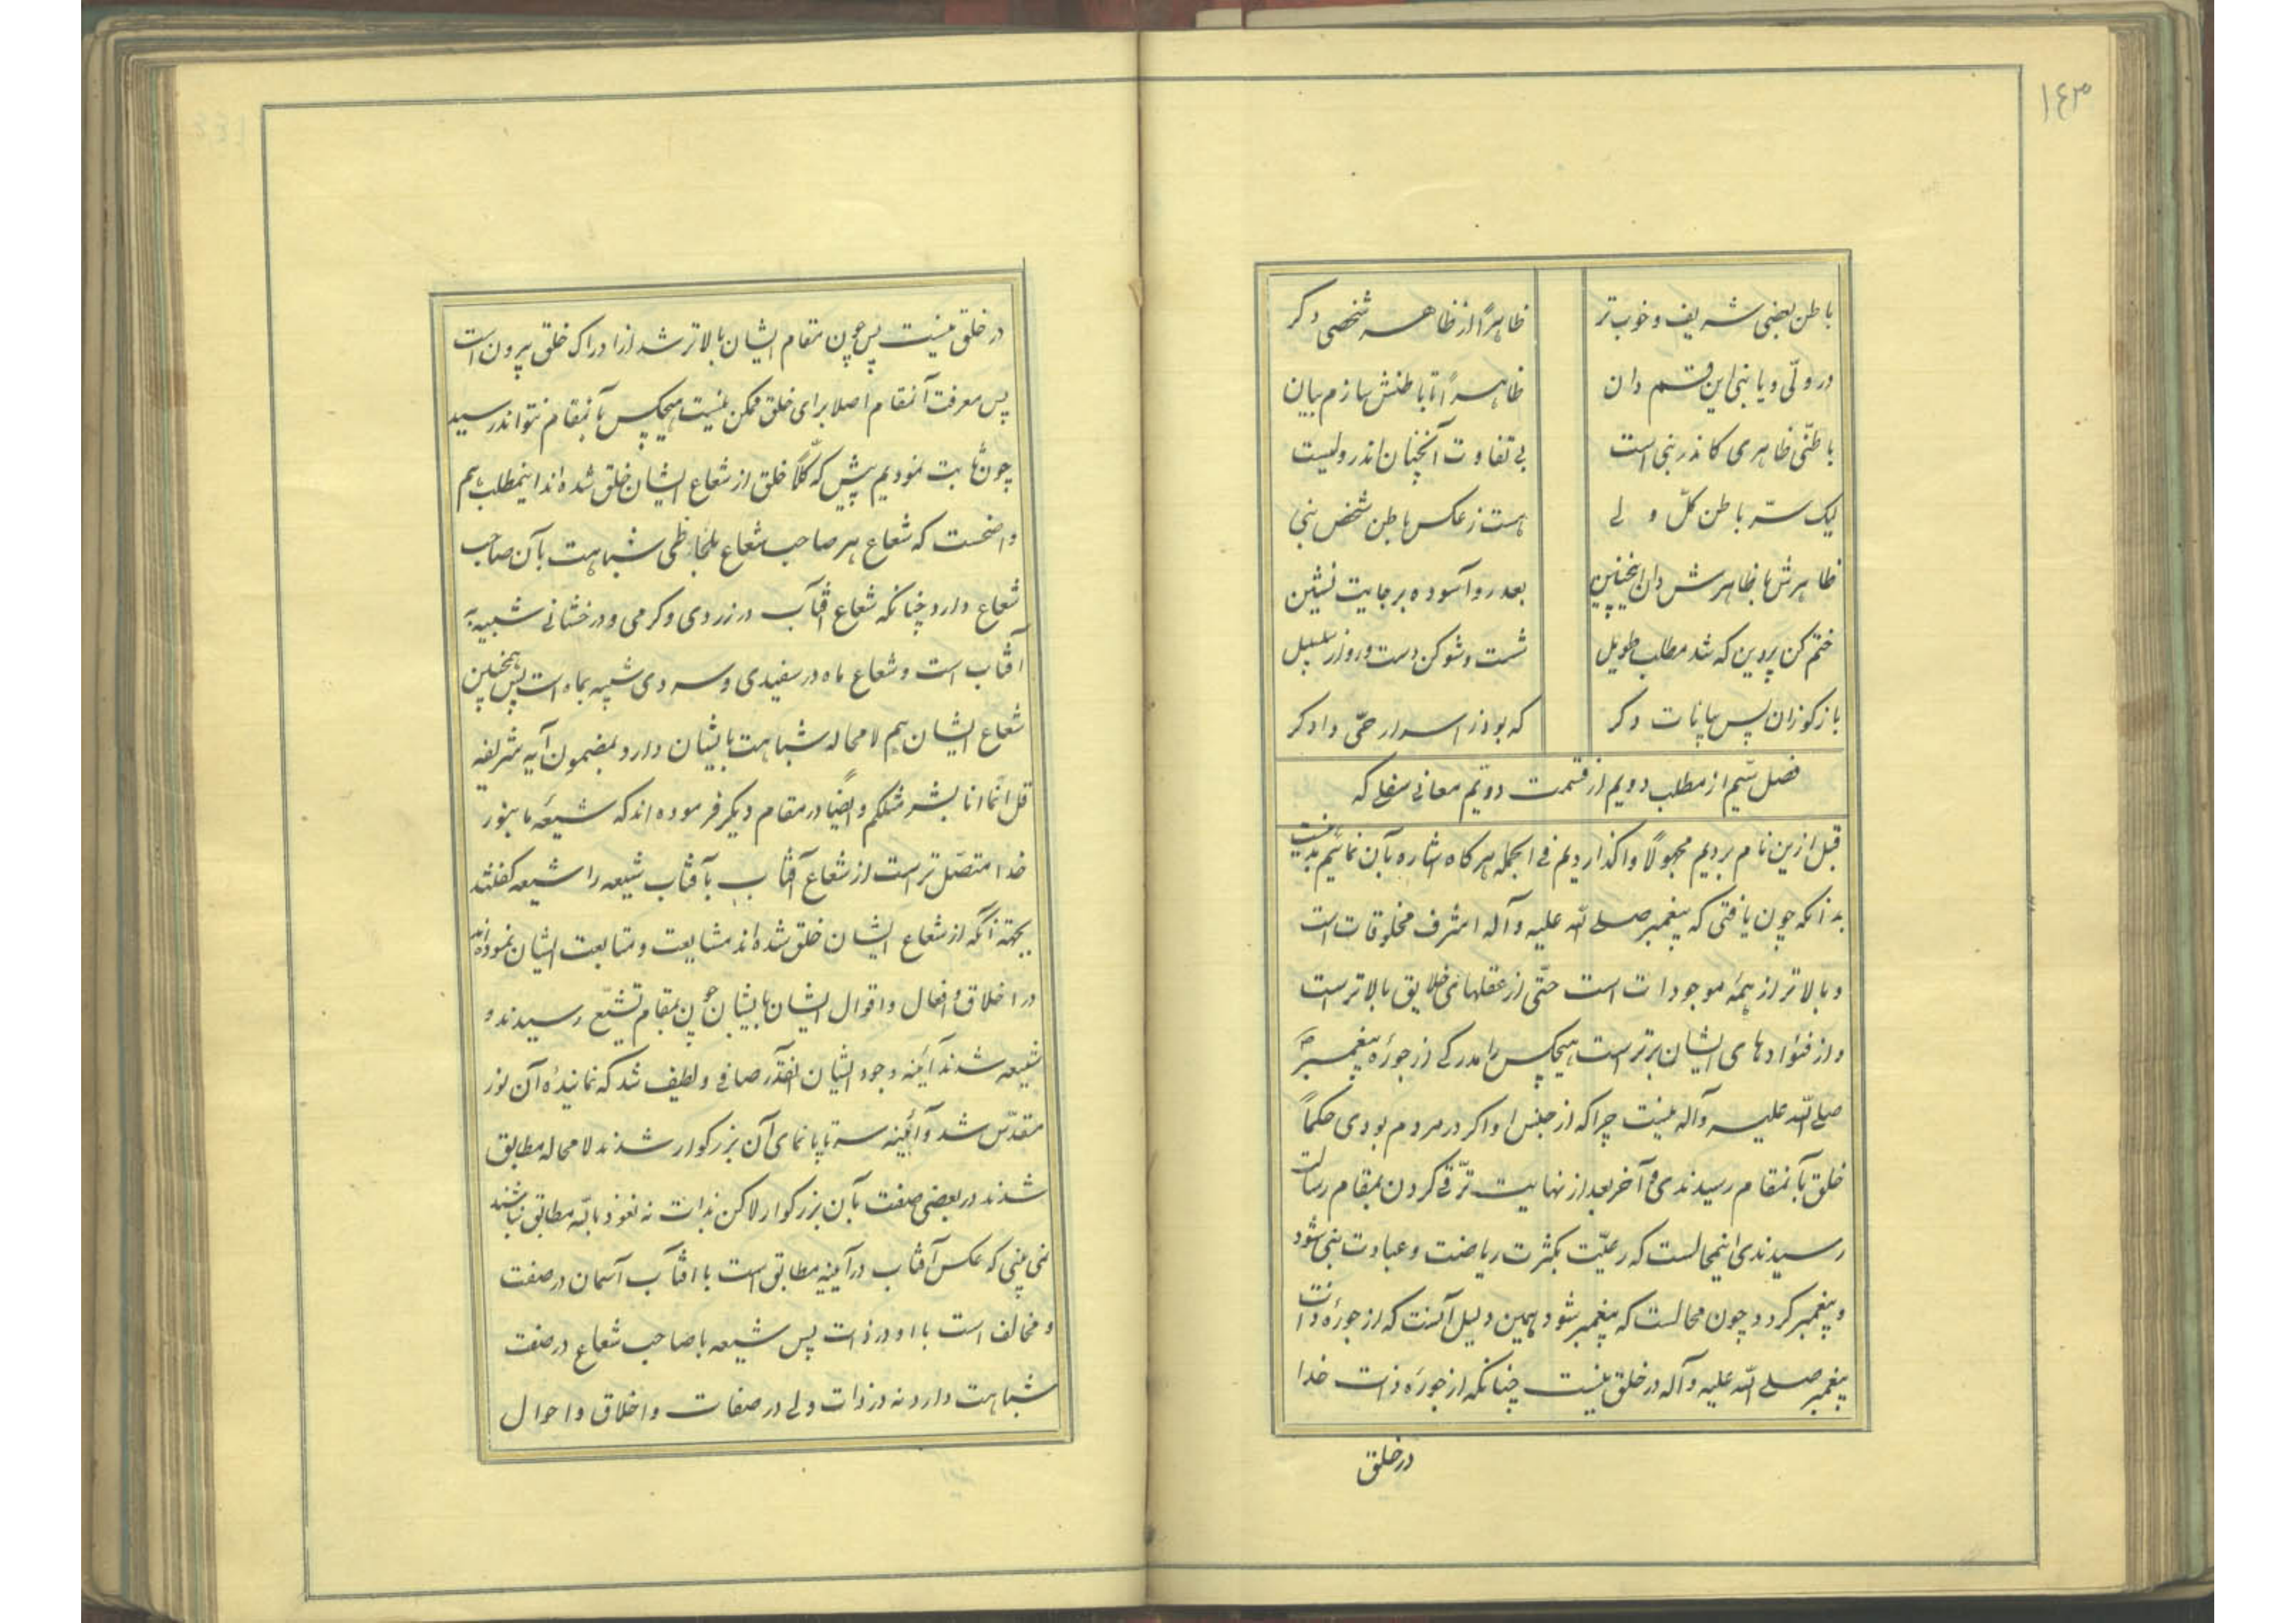 ۱۴۳
باطن بعضی شریف و خوب تر ظاهراً از ظاهر شخصی دکر
در ولّی و یا نبی این قسم دان ظاهراً تا باطنش سازم بیان
باطنّی ظاهری کاندر نبی است بی تفاوت آنچنان اندر ولیست
لیک سرّ باطن کلّ ولی هست ز عکس باطن شخص نبی
ظاهرش با ظاهرش دان اینچنین بعد رو آسوده بر جایت نشین
ختم کن پروین که شد مطلب طویل شست و شو کن دست و رو از سلسبیل
باز کو زان پس بیانات دکر که بود ز اسرار حقّ دادکر
فصل سّیم از مطلب دویم از قسمت دوّیم معانی سفلی که
قبل ازین نام بردیم مجهولاً واکذاردیم فی الجمله هر کاه اشاره بآن نمائیم بد نیست
بدانکه چون یافتی که پیغمبر صلی الله علیه و آله اشرف مخلوقات است
و بالاتر از همهٔ موجودات است حتّی از عقلهای خلایق بالاتر است
و از فئوادهای ایشان برتر است هیچکس را مدرکی از جوزهٔ پیغمبر
صلی الله علیه و آله نیست چرا که از جنس او اکر در مردم بودی حکماً
خلق بآنمقام رسیدندی و آخر بعد از نهایت ترّقی کردن بمقام رسالت
رسیدندی اینمحالست که رعیّت بکثرت ریاضت و عبادت نبی شود
و پیغمبر کردد چون محالست که پیغمبر شود همین دلیل آنست که از جوزهٔ ذات
پیغمبر صلی الله علیه و آله در خلق نیست چنانکه از جوزهٔ ذات خدا
در خلق
در خلق نیست پس چون مقام ایشان بالاتر شد از ادراک خلق بیرون است
پس معرفت آنمقام اصلا برای خلق ممکن نیست هیچکس بآنمقام نتواند رسید
چون ثابت نمودیم پیش که کلّاً خلق از شعاع ایشان خلق شده اند اینمطلب هم
واضحست که شعاع هر صاحب شعاع بلحاظی شباهت بآن صاحب
شعاع دارد چنانکه شعاع آفتاب در زردی و کرمی و درخشانی شبیه به
آفتاب است و شعاع ماه در سفیدی و سردی شبیه بماه است پس همچنین
شعاع ایشان هم لامحاله شباهت بایشان دارد بمضمون آیه شریفه
قل انّما انا بشر مثلکم و ایضاً در مقام دیکر فرموده اند که شیعهٔ ما بنور
خدا متصّل تر است از شعاع آفتاب بآفتاب شیعه را شیعه کفتند
بجهته آنکه از شعاع ایشان خلق شده اند مشایعت و متابعت ایشان نموده اند
در اخلاق و افعال و اقوال ایشان بایشان چون بمقام تشیّع رسیدند و
شیعه شدند آینه وجود ایشان انقدر صافی و لطیف شد که نمایندهٔ آن نور
مقدّس شد و آئینه سرتاپا نمای آن بزرکوار شدند لامحاله مطابق
شدند در بعضی صفت بآن بزرکوار لاکن بذات نه نعوذ بالله مطابق نباشند
نمی بینی که عکس آفتاب در آیینه مطابق است با آفتاب آسمان در صفت
و مخالف است با او در ذات پس شیعه با صاحب شعاع در صفت
شباهت دارد نه در ذات ولی در صفات و اخلاق و احوال